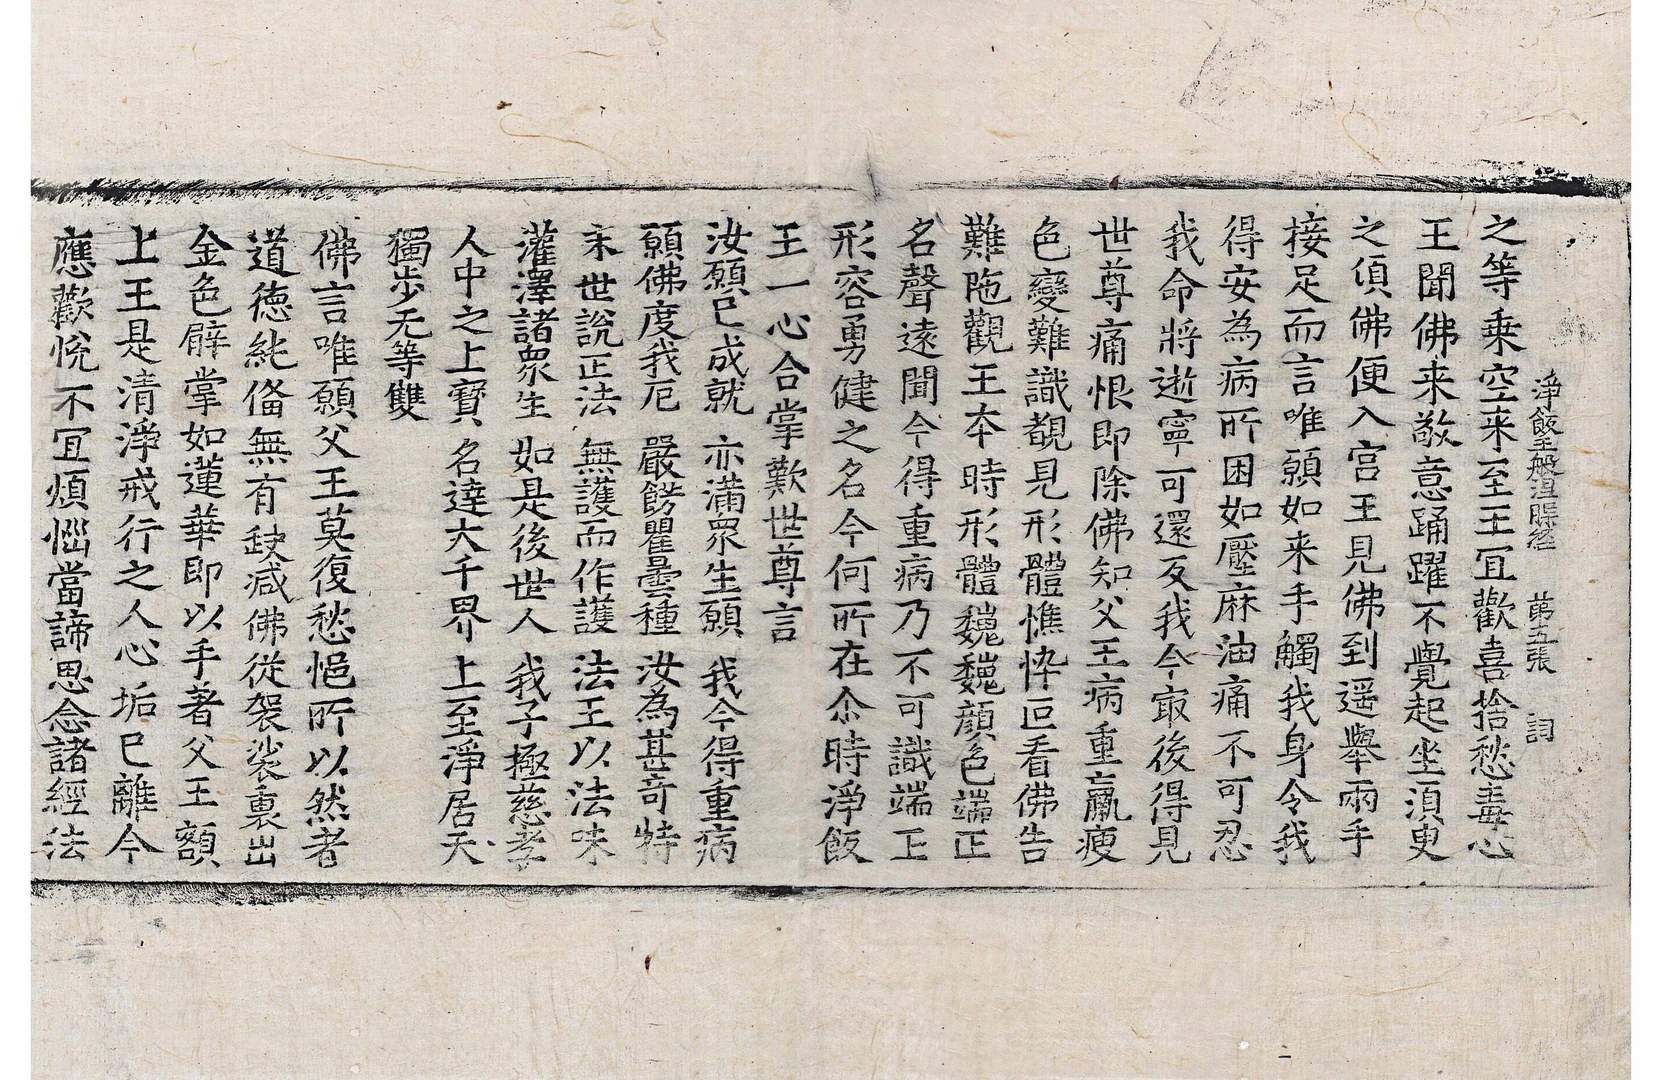 淨飯王般涅槃經　第五張　詞
之等乗空来至王冝歡喜捨愁毒心
王聞佛来敬意踊躍不覺起坐湏臾
之傾佛便入宫王見佛到遥舉兩手
接足而言唯願如来手觸我身令我
得安為病所困如壓麻油痛不可忍
我命將逝寧可還反我今冣後得見
世尊痛恨即除佛知父王病重羸瘦
色變難識覩見形體憔悴叵看佛告
難陁觀王本時形體巍巍顔色端正
名聲遠聞今得重病乃不可識端正
形容勇健之名今何所在尒時淨飯
王一心合掌歎世尊言
汝願已成就　亦滿衆生願　我今得重病
願佛度我厄　嚴餝瞿曇種　汝為甚奇特
末世說正法　無護而作護　法王以法味
灌澤諸衆生　如是後世人　我子極慈孝
人中之上寳　名逹大千界　上至淨居天
獨步无等雙
佛言唯願父王莫復愁悒所以然者
道德純俻無有缺减佛從袈裟裏出
金色臂掌如蓮華即以手著父王額
上王是清淨戒行之人心垢已離今
應歡悅不冝煩惱當諦思念諸經法